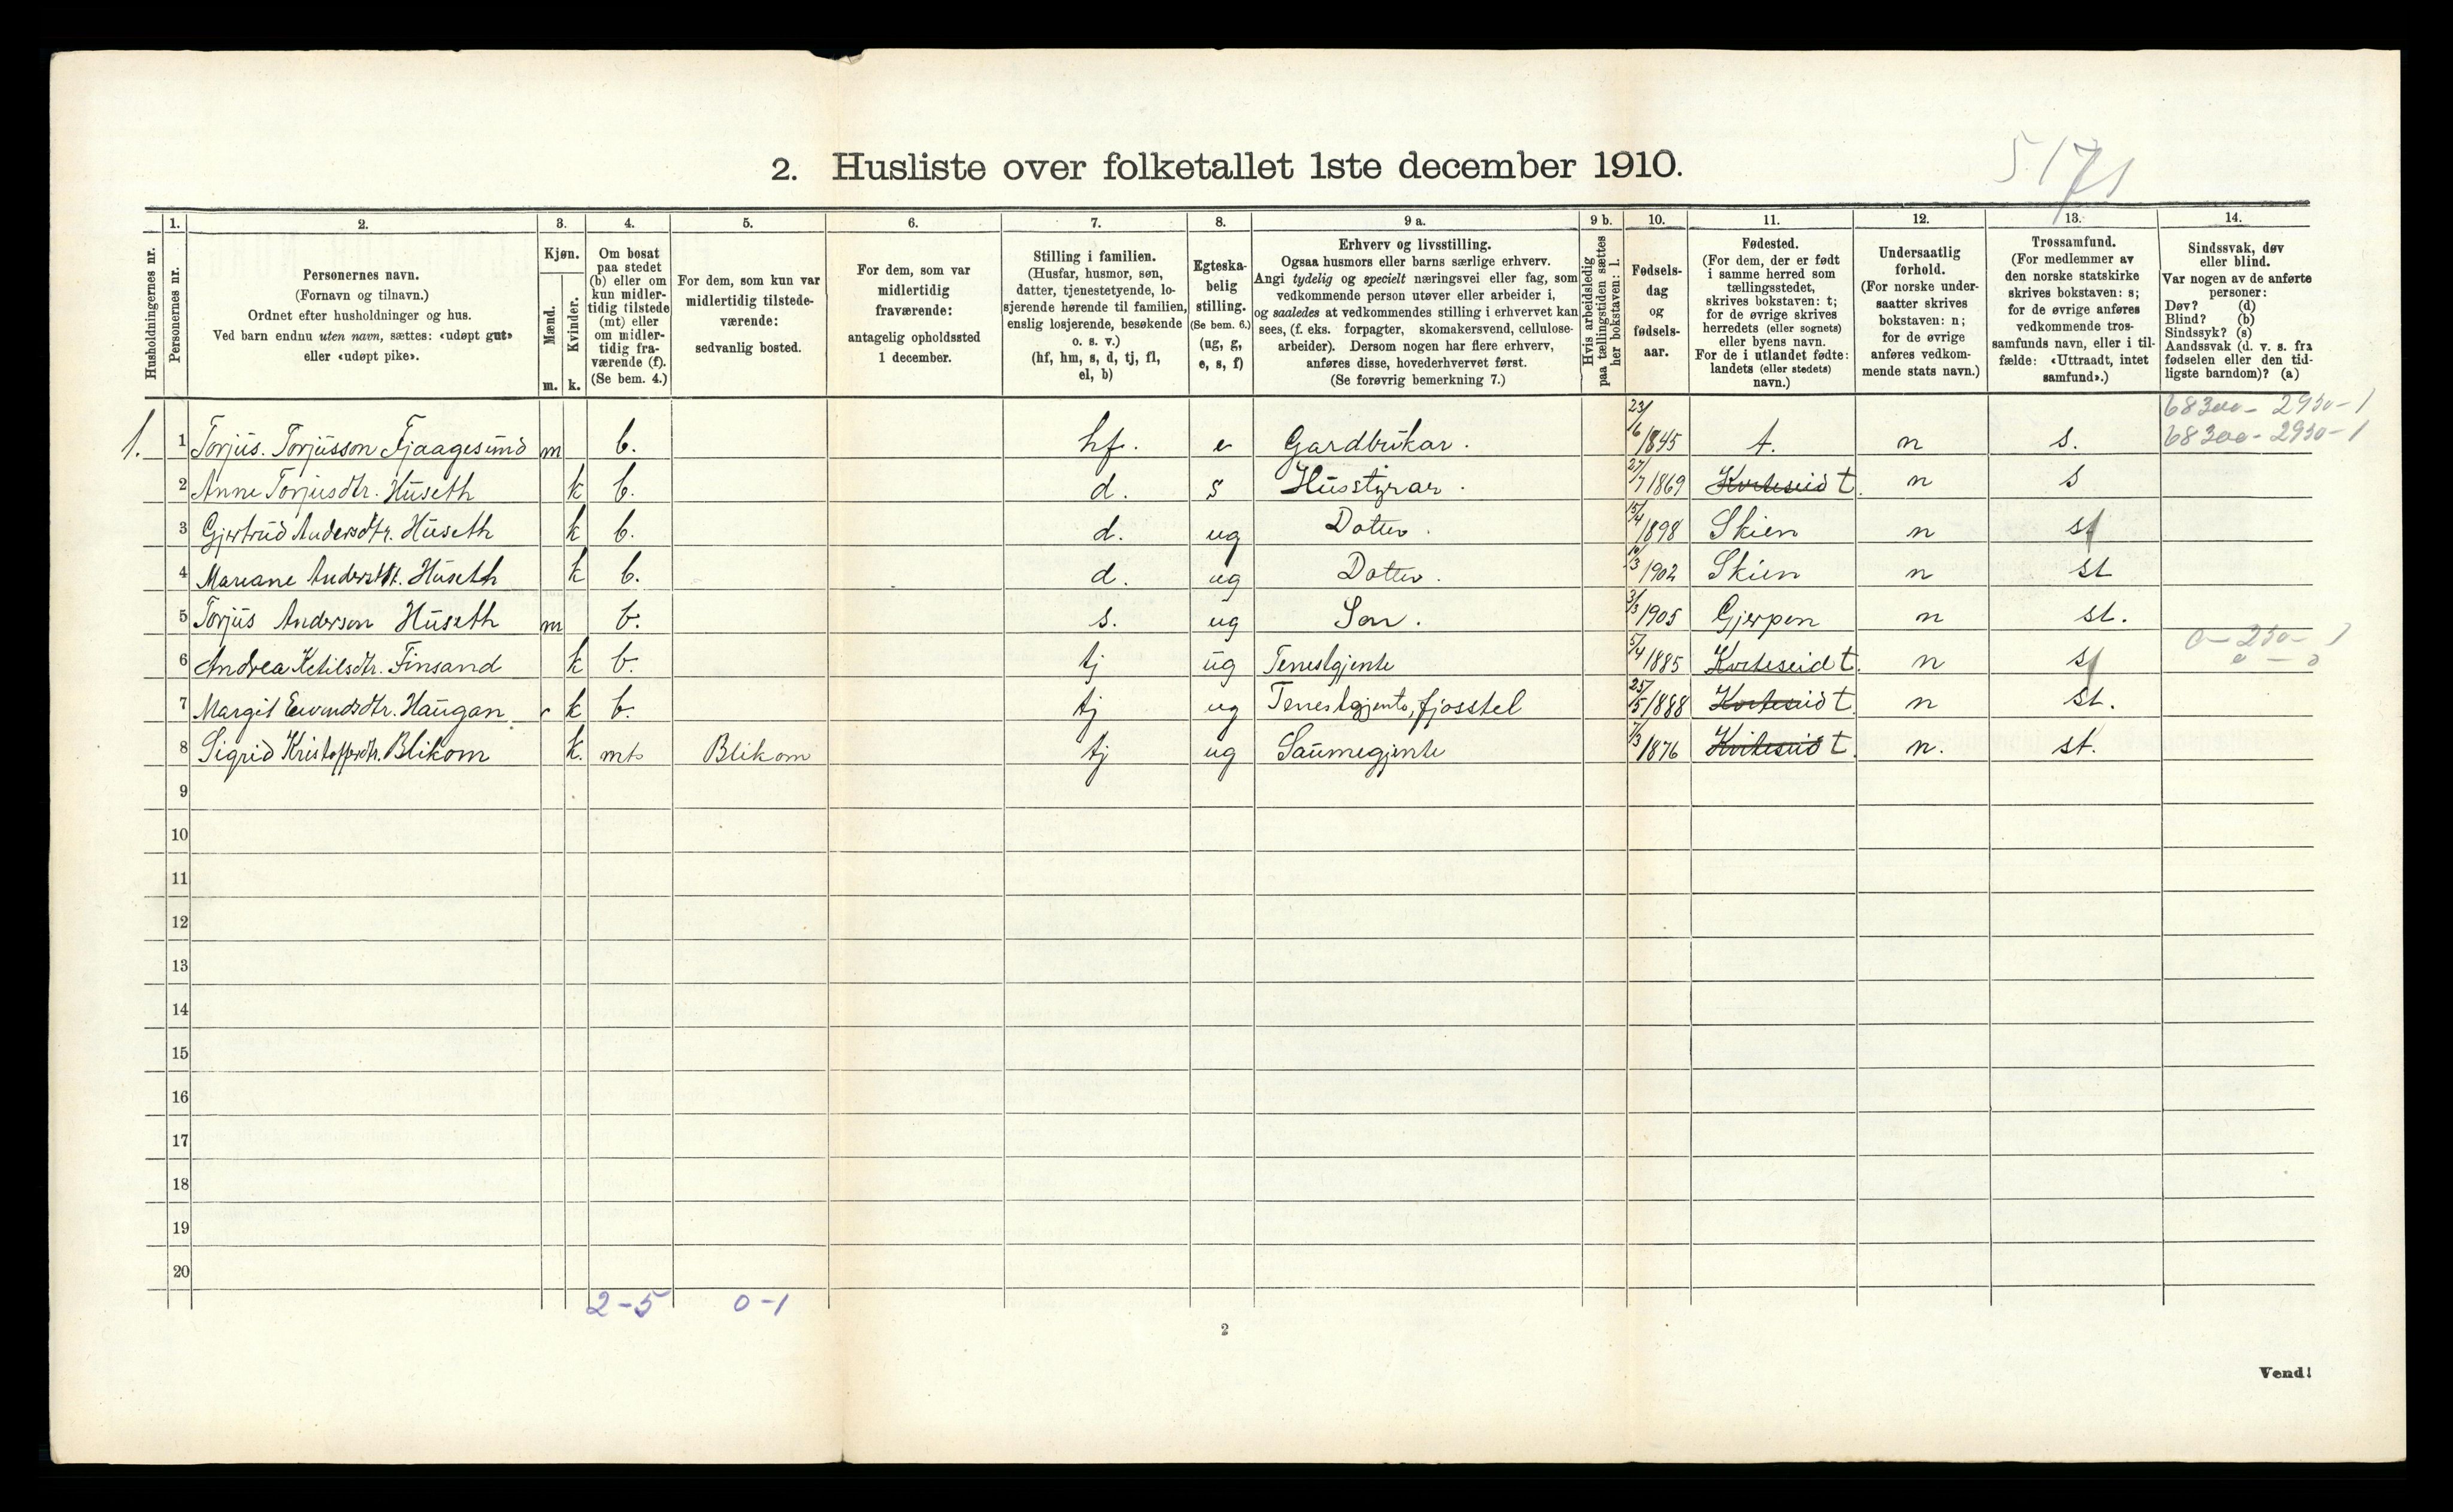 5171
2. Husliste over folketallet 1ste december 1910.
1. 2. 3. 4. 5. 6. 7. 8. 9 a. 9 b. 10. 11. 12. 13. 14.
Husholdningernes nr.
Personernes nr.
Personernes navn.
(Fornavn og tilnavn.)
Ordnet efter husholdninger og hus.
Ved barn endnu uten navn, sættes: «udøpt gut»
eller «udøpt pike».
Kjøn.
Mænd.
Kvinder.
m. k.
Om bosat
paa stedet
(b) eller om
kun midler-
tidig tilstede
(mt) eller
om midler-
tidig fra-
værende (f).
(Se bem. 4.)
For dem, som kun var
midlertidig tilstede-
værende:
sedvanlig bosted.
For dem, som var
midlertidig
fraværende:
antagelig opholdssted
1 december.
Stilling i familien.
(Husfar, husmor, søn,
datter, tjenestetyende, lo-
sjerende hørende til familien,
enslig losjerende, besøkende
o. s. v.)
(hf, hm, s, d, tj, fl,
el, b)
Egteska-
belig
stilling.
(Se bem. 6.)
(ug, g,
e, s, f)
Erhverv og livsstilling.
Ogsaa husmors eller barns særlige erhverv.
Angi tydelig og specielt næringsvei eller fag, som
vedkommende person utøver eller arbeider i,
og saaledes at vedkommendes stilling i erhvervet kan
sees, (f. eks. forpagter, skomakersvend, cellulose-
arbeider). Dersom nogen har flere erhverv,
anføres disse, hovederhvervet først.
(Se forøvrig bemerkning 7.)
Hvis arbeidsledig
paa tællingstiden sættes
her bokstaven: l.
Fødsels-
dag
og
fødsels-
aar.
Fødested.
(For dem, der er født
i samme herred som
tællingsstedet,
skrives bokstaven: t;
for de øvrige skrives
herredets (eller sognets)
eller byens navn.
For de i utlandet fødte:
landets (eller stedets)
navn.)
Undersaatlig
forhold.
(For norske under-
saatter skrives
bokstaven: n;
for de øvrige
anføres vedkom-
mende stats navn.)
Trossamfund.
(For medlemmer av
den norske statskirke
skrives bokstaven: s;
for de øvrige anføres
vedkommende tros-
samfunds navn, eller i til-
fælde: «Uttraadt, intet
samfund».)
Sindssvak, døv
eller blind.
Var nogen av de anførte
personer:
Døv? (d)
Blind? (b)
Sindssyk? (s)
Aandssvak (d. v. s. fra
fødselen eller den tid-
ligste barndom)? (a)
68300 - 2950 - 1
1. 1 Torjus. Torjusson Fjaagesund m b. hf. e Gardbrukar. 23/6 1845 t. n s. 68300 - 2950 - 1
2 Anne Torjusdtr. Huseth k b. d. s Husstyrar. 27/7 1869 Kviteseid t. n s
3 Gjertrud Andersdtr. Huseth k b. d. ug Dotter. 15/4 1898 Skien n st
4 Mariane Andersdt. Huseth k b. d. ug Dotter. 10/3 1902 Skien n st
5 Torjus Anderson Huseth m b. s. ug Son. 3/3 1905 Gjerpen n st.
0 - 250 - 1
6 Andrea Ketilsdtr. Finsand k b. tj ug Tenestgjente 5/4 1885 Kviteseid t. n st
7 Margit Eivendsdtr. Haugan k b. tj ug Tenestgjente, fjosstel 25/5 1888 Kviteseid t n st.
8 Sigrid Kristoffersdtr. Blikom k. mt Blikom tj ug Saumegjente 7/3 1876 Kviteseid t. n. st.
9
10
11
12
13
14
15
16
17
18
19
20
2-5 0-1
2
Vend!